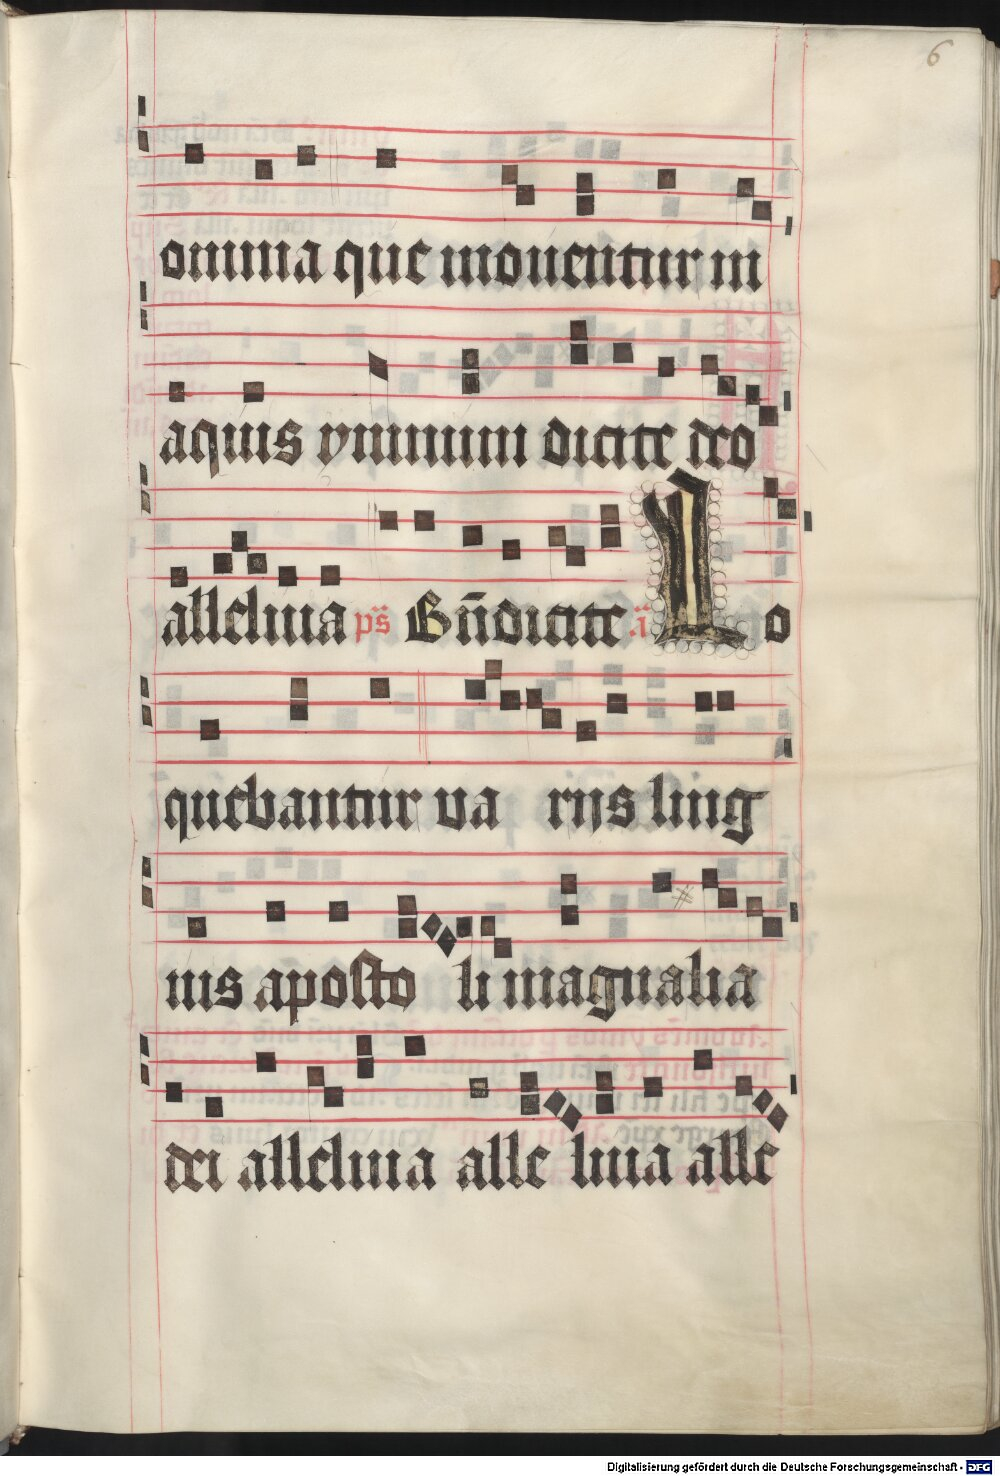 6
omnia que mouentur in
aquis ymnum dicite deo
alleluia ps̃ Bñdicite .ã Lo
quebantur va rijs ling
uis aposto li magnalia
dei alleluia alle luia alle
Digitalisierung gefördert durch die Deutsche Forschungsgemeinschaft - DFG